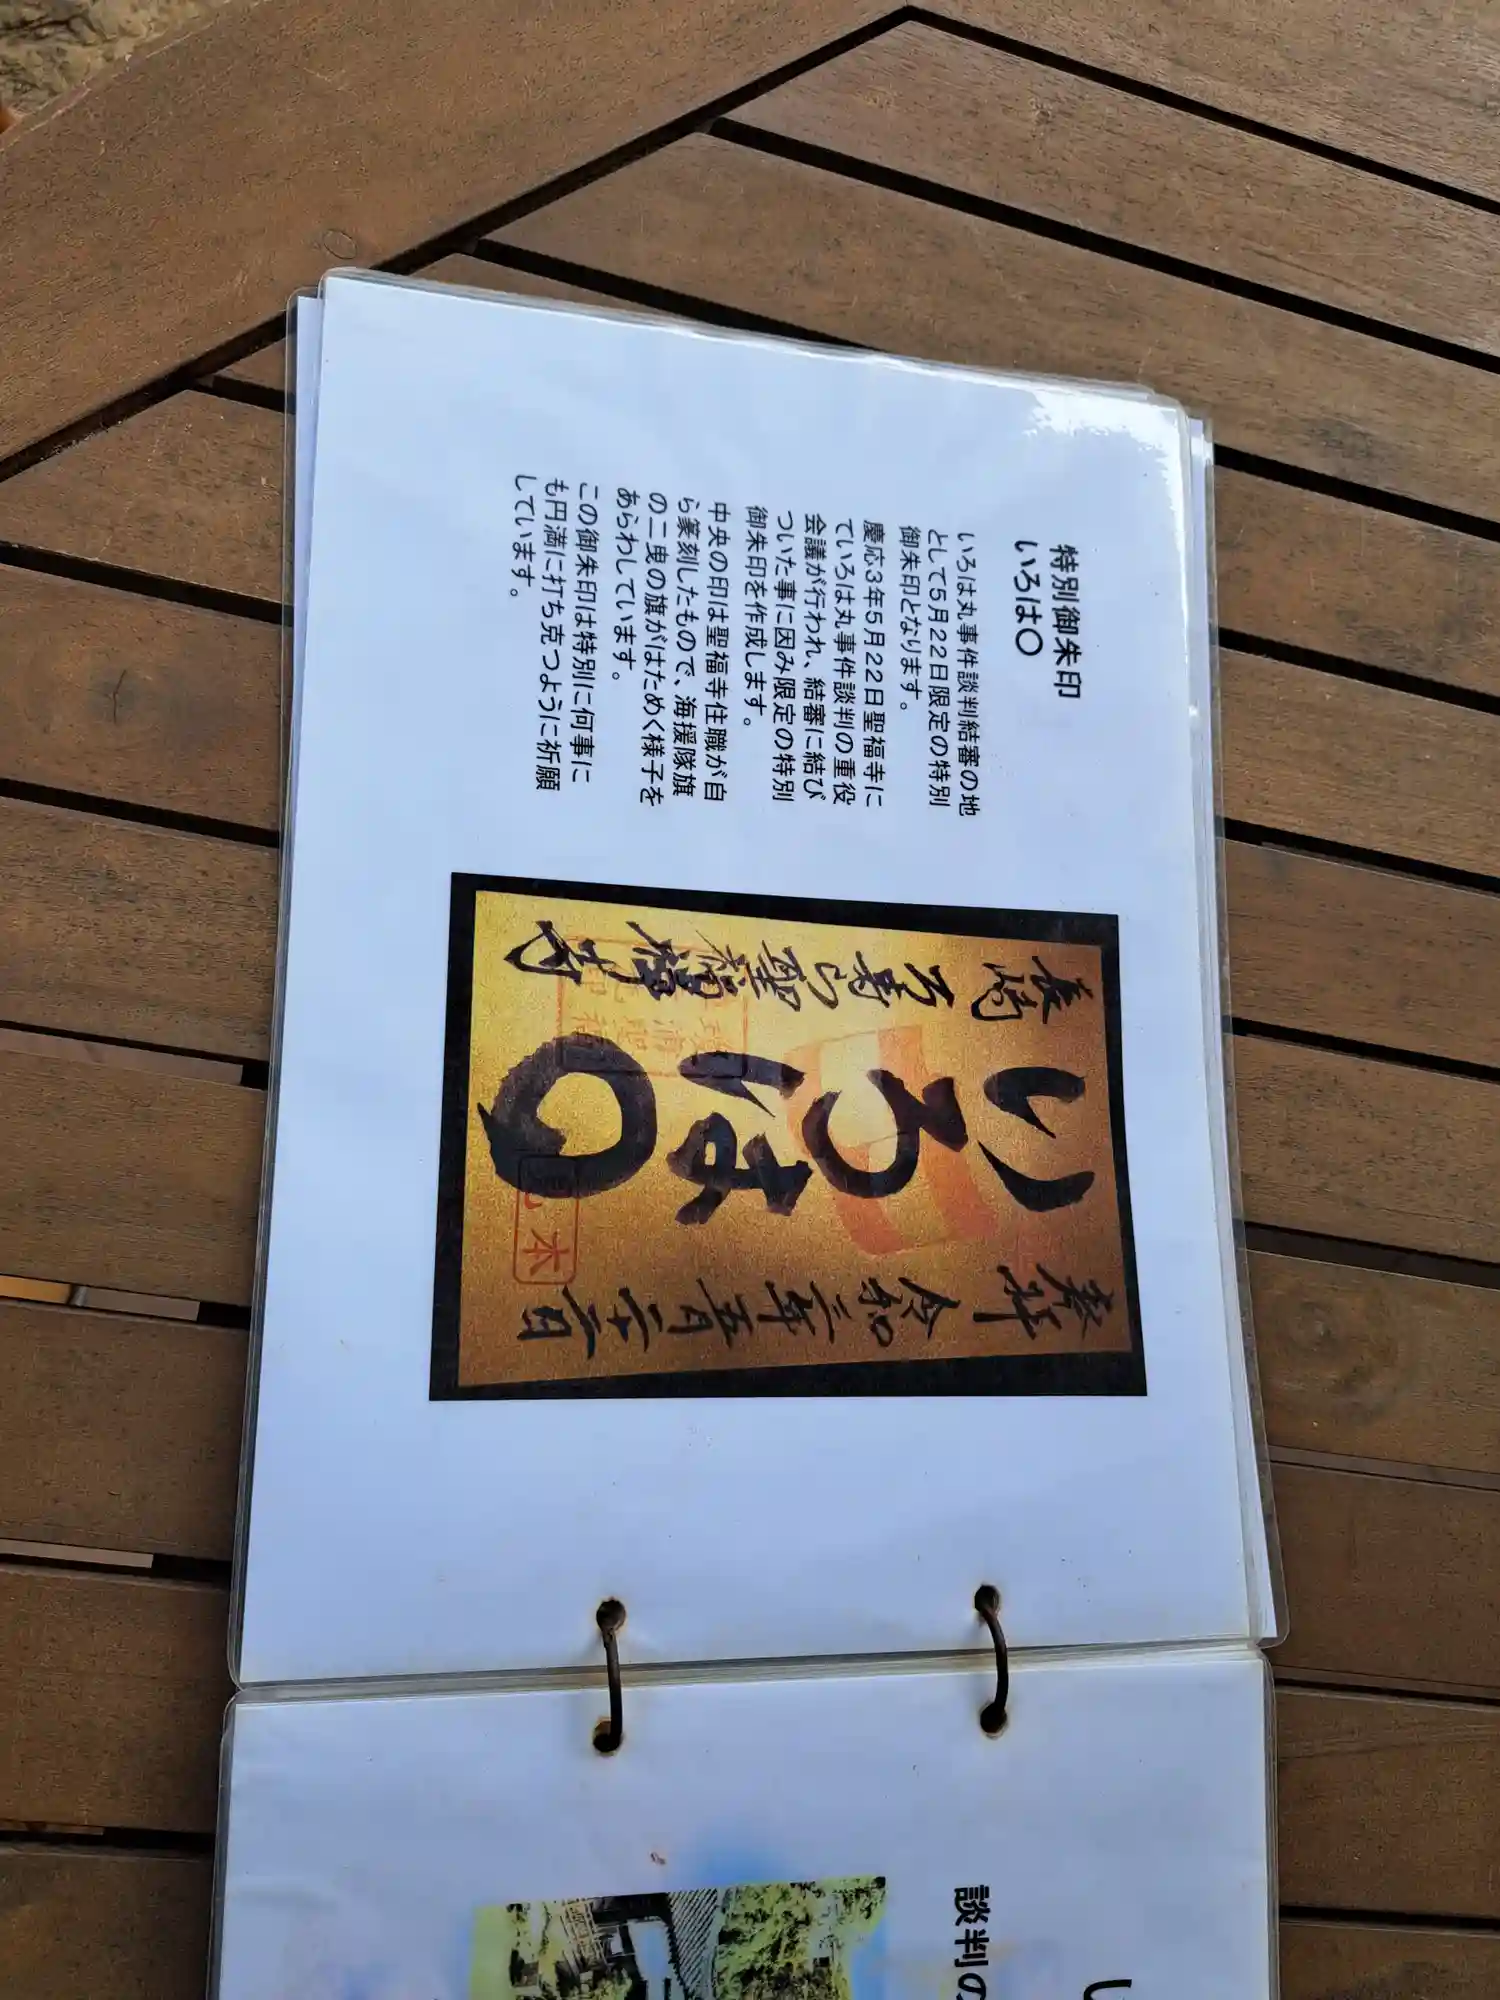 特別御朱印
いろは〇
いろは丸事件談判結審の地
として5月22日限定の特別
御朱印となります。
慶応3年5月22日聖福寺に
ていろは丸事件談判の重役
会議が行われ、結審に結び
ついた事に因み限定の特別
御朱印を作成します。
中央の印は聖福寺住職が自
ら篆刻したもので、海援隊旗
の二曳の旗がはためく様子を
あらわしています。
この御朱印は特別に何事に
も円満に打ち克つように祈願
しています。
奉拝 令和二年五月二十二日
いろは〇
長崎 万寿山 聖福禅寺
本
談判の
い